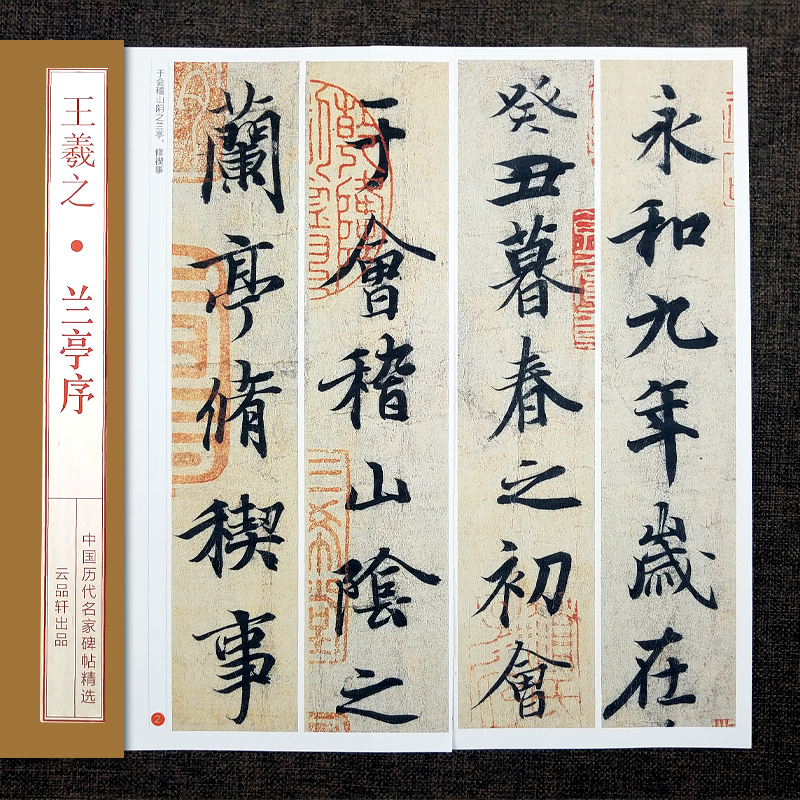 王羲之·兰亭序
中国历代名家碑帖精选
云品轩出品
永和九年歲在
癸丑暮春之初會
于會稽山陰之
蘭亭脩稧事
于会稽山阴之兰亭,修禊事
2